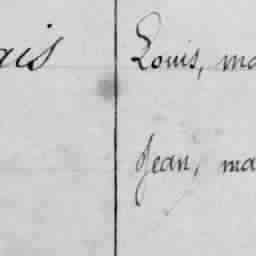 ais
Louis, ma
Jean, ma